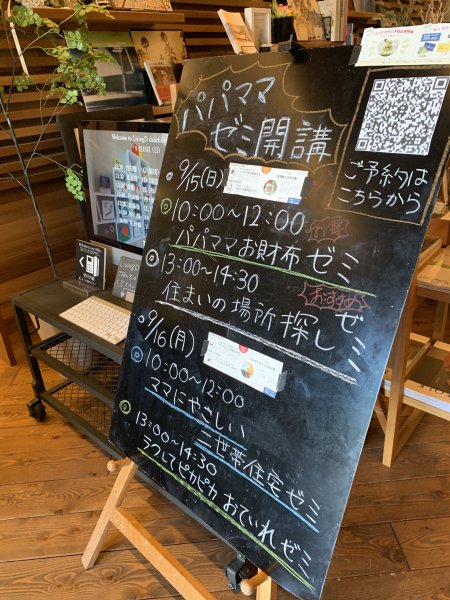 パパママ
ゼミ開講
ご予約は
こちらから
9/15(日)
①10:00〜12:00
パパママお財布ゼミ
②13:00〜14:30
おすすめ
住まいの場所探しゼミ
9/16(月)
①10:00〜12:00
ママにやさしい
二世帯住宅ゼミ
②13:00〜14:30
ラクしてピカピカおていれゼミ
Welcome to LivingD